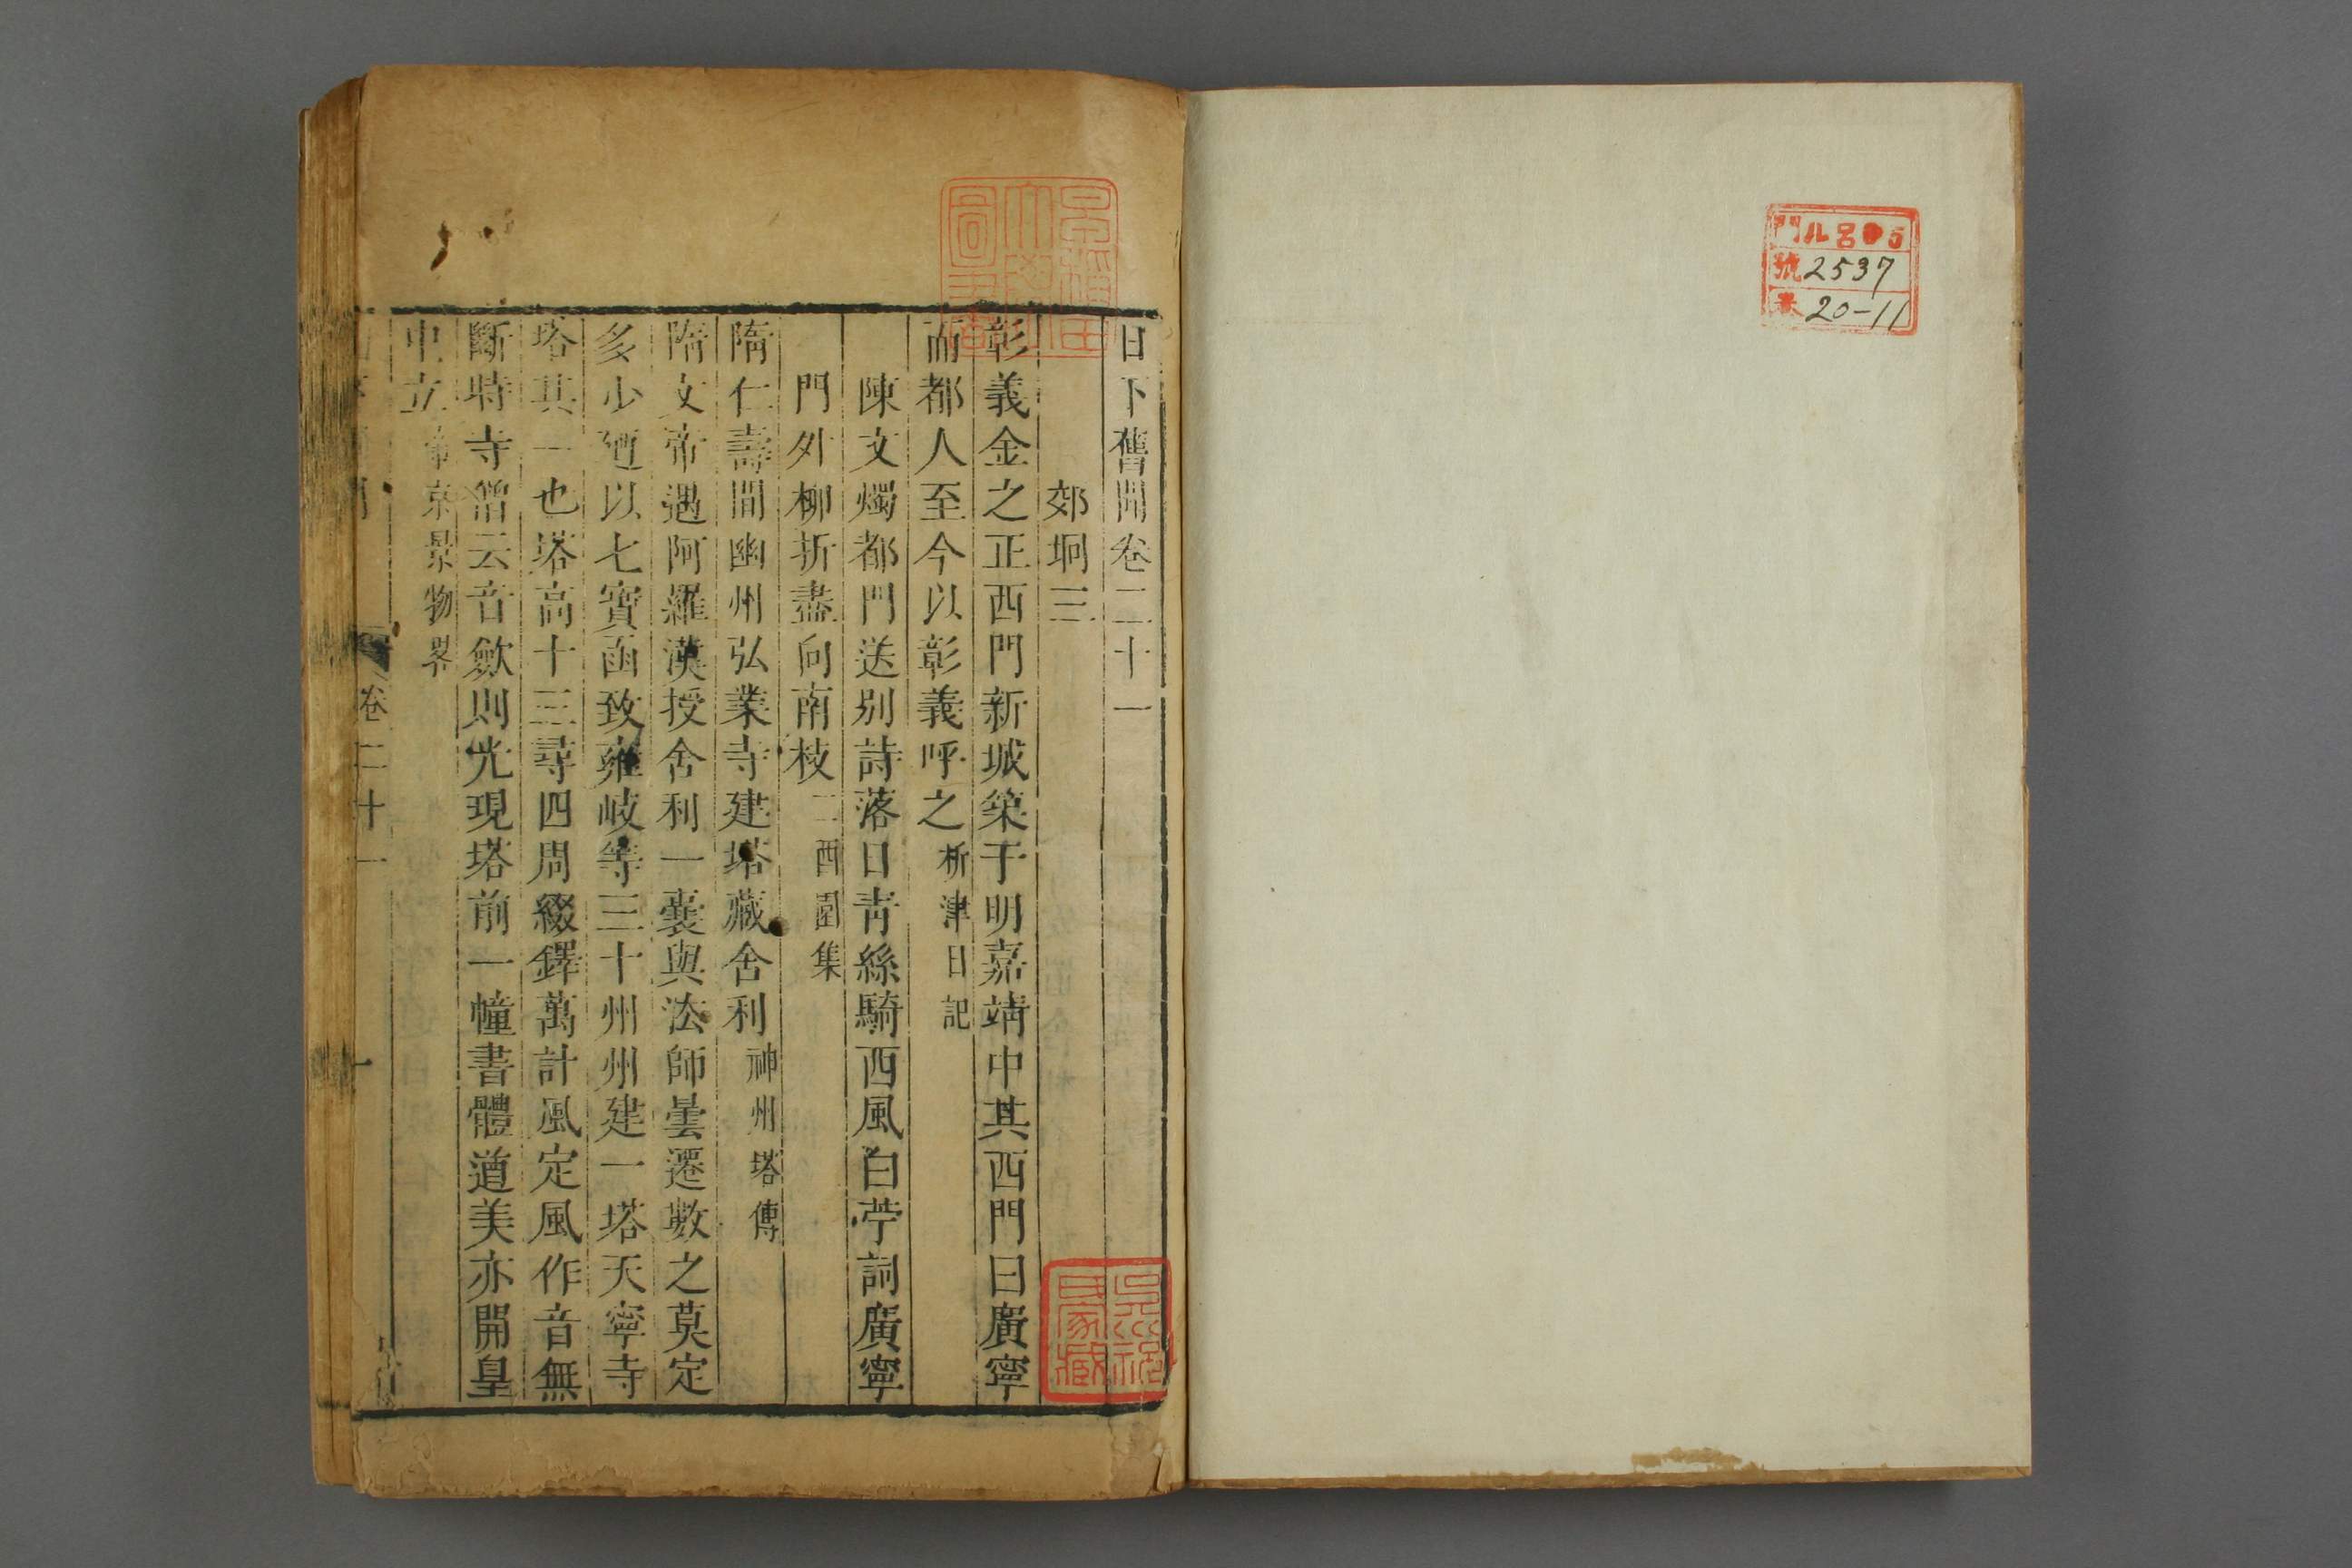 門 ル呂 5
號 2537
卷 20-11
日下舊聞卷二十一
郊坰三
彰義金之正西門新城築于明嘉靖中其西門曰廣寧
而都人至今以彰義呼之 析津日記
陳文燭都門送别詩落日青絲騎西風白苧詞廣寧
門外柳折盡向南枝 二酉園集
隋仁壽間幽州弘業寺建塔藏舍利 神州塔傳
隋文帝遇阿羅漢授舍利一囊與法師曇遷數之莫定
多少廼以七寶函致雍岐等三十州州建一塔天寧寺
塔其一也塔高十三尋四周綴鐸萬計風定風作音無
斷時寺僧云音歛則光現塔前一幢書體遒美亦開皇
中立 帝京景物畧
卷二十一
一